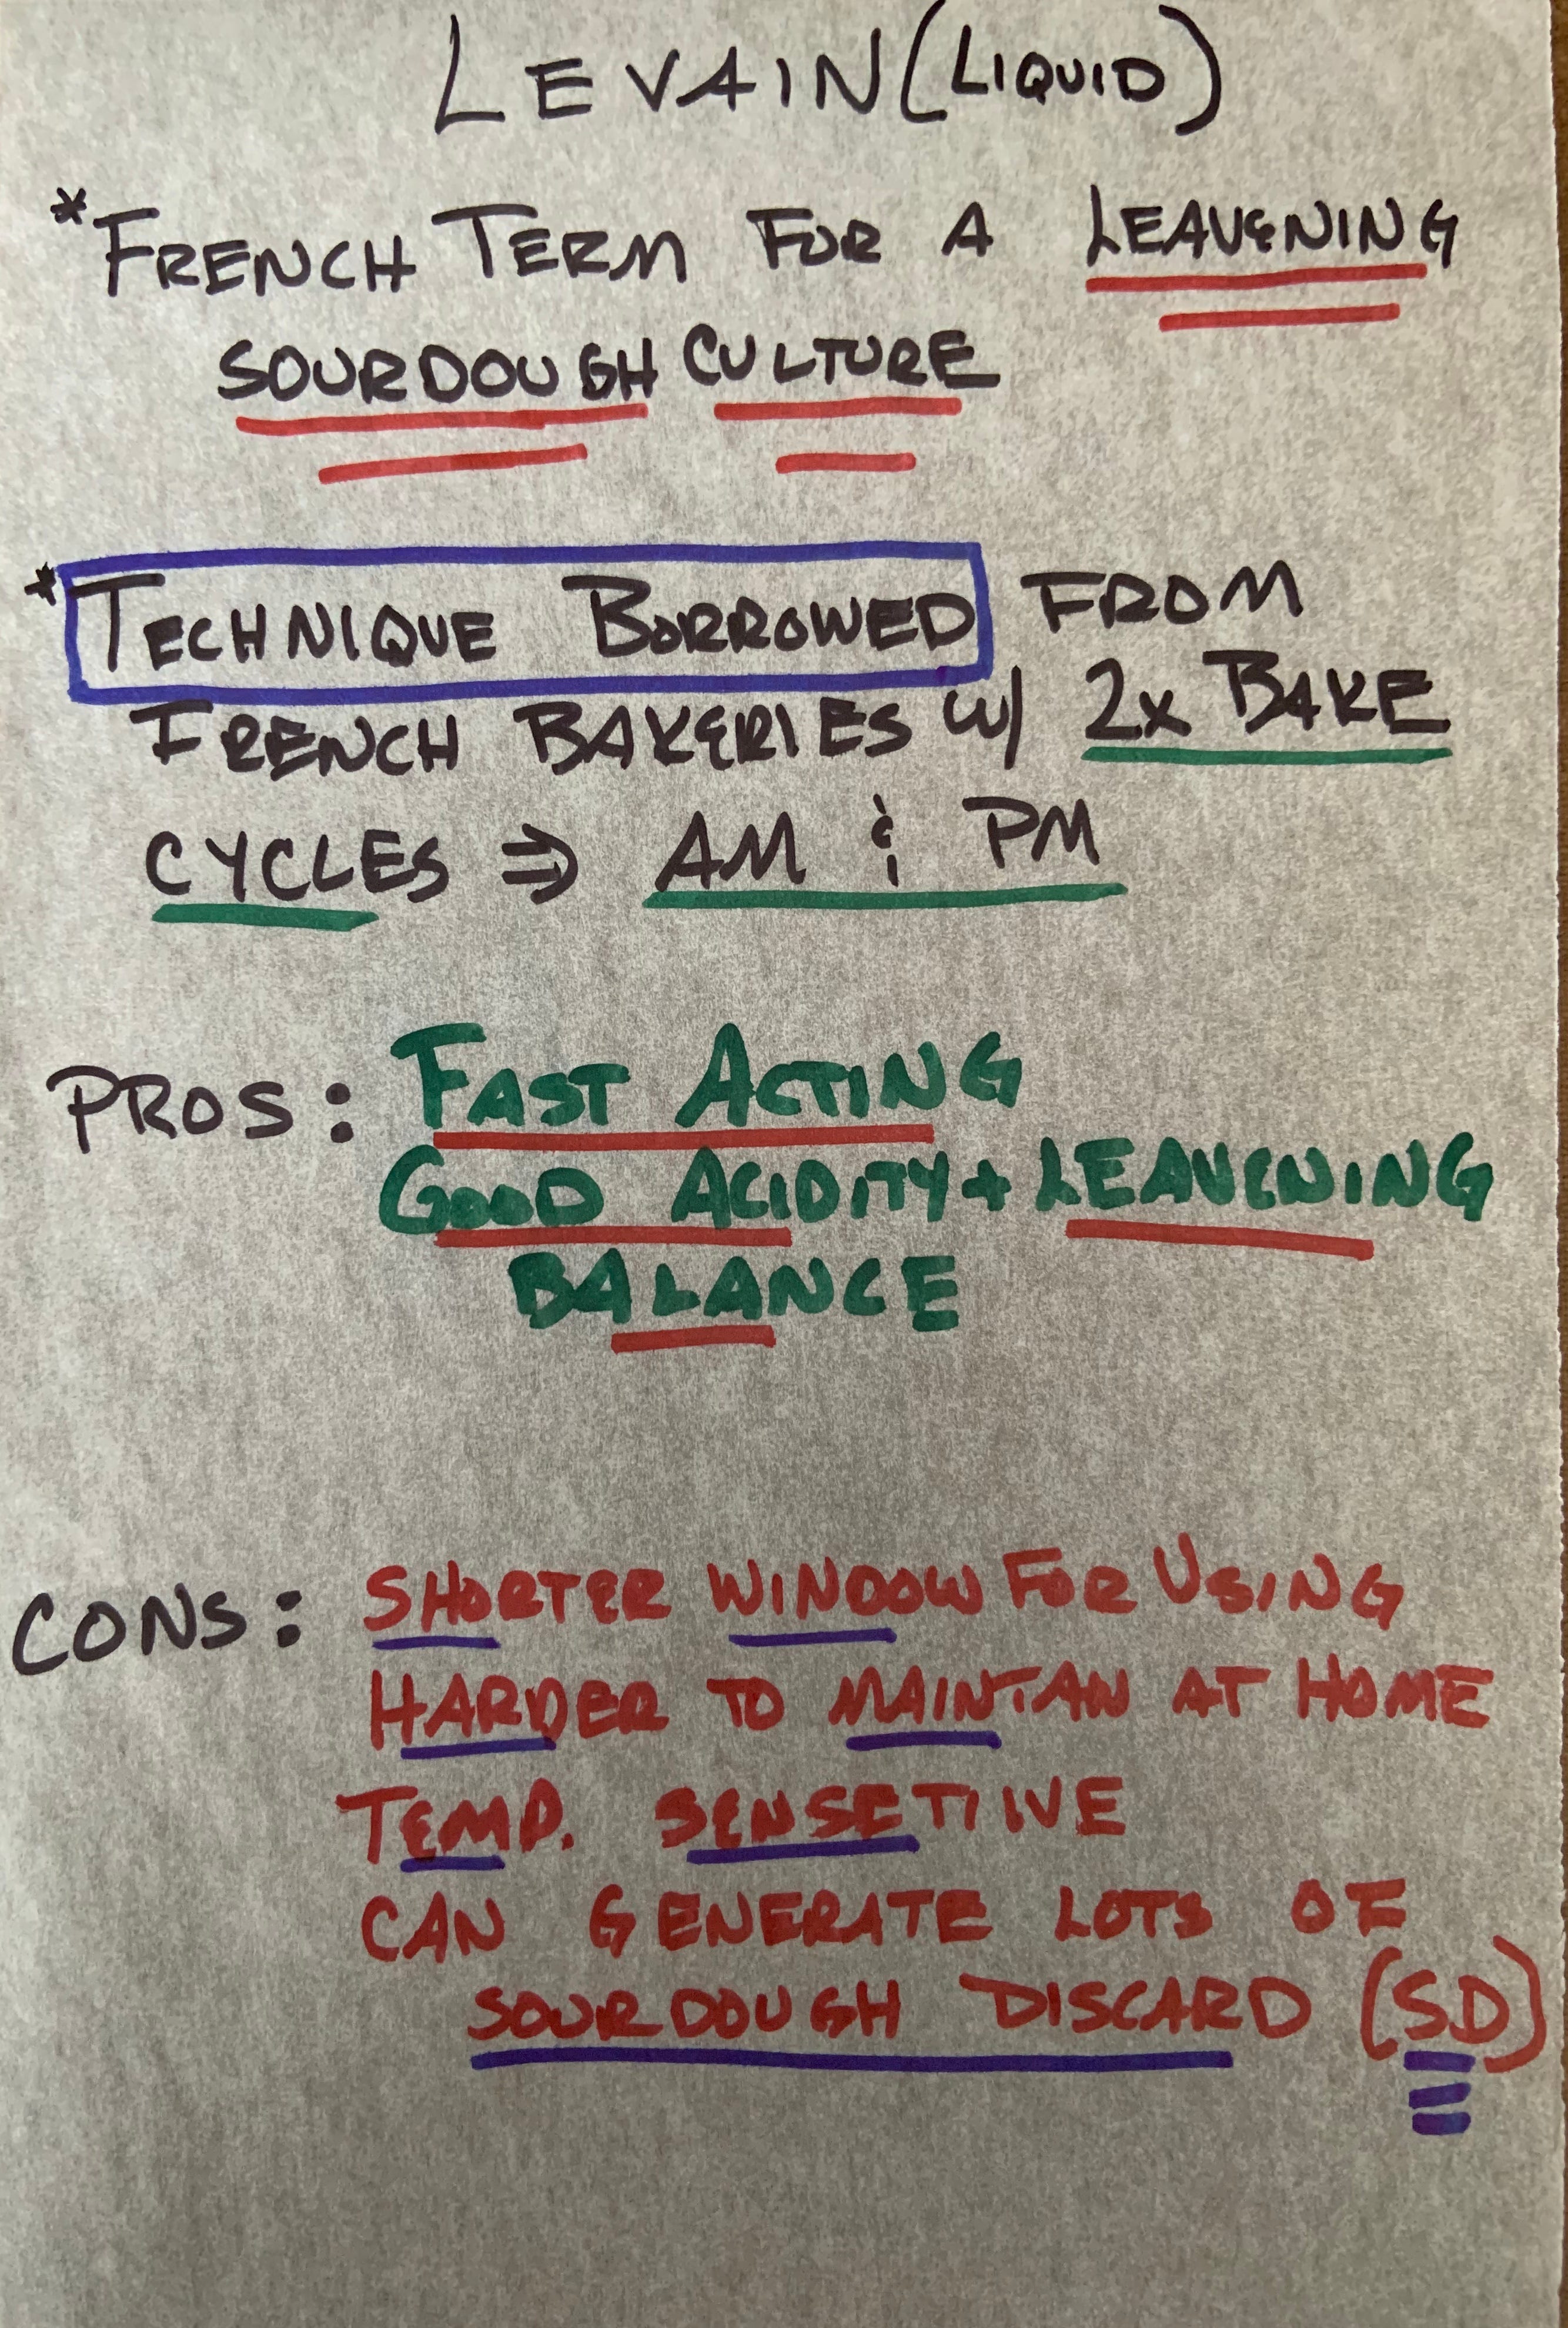 LEVAIN (LIQUID)
* FRENCH TERM FOR A LEAVENING
SOURDOUGH CULTURE
* TECHNIQUE BORROWED FROM
FRENCH BAKERIES W/ 2X BAKE
CYCLES ⇒ AM & PM
PROS: FAST ACTING
GOOD ACIDITY + LEAVENING
BALANCE
CONS: SHORTER WINDOW FOR USING
HARDER TO MAINTAN AT HOME
TEMP. SENSETIVE
CAN GENERATE LOTS OF
SOURDOUGH DISCARD (SD)